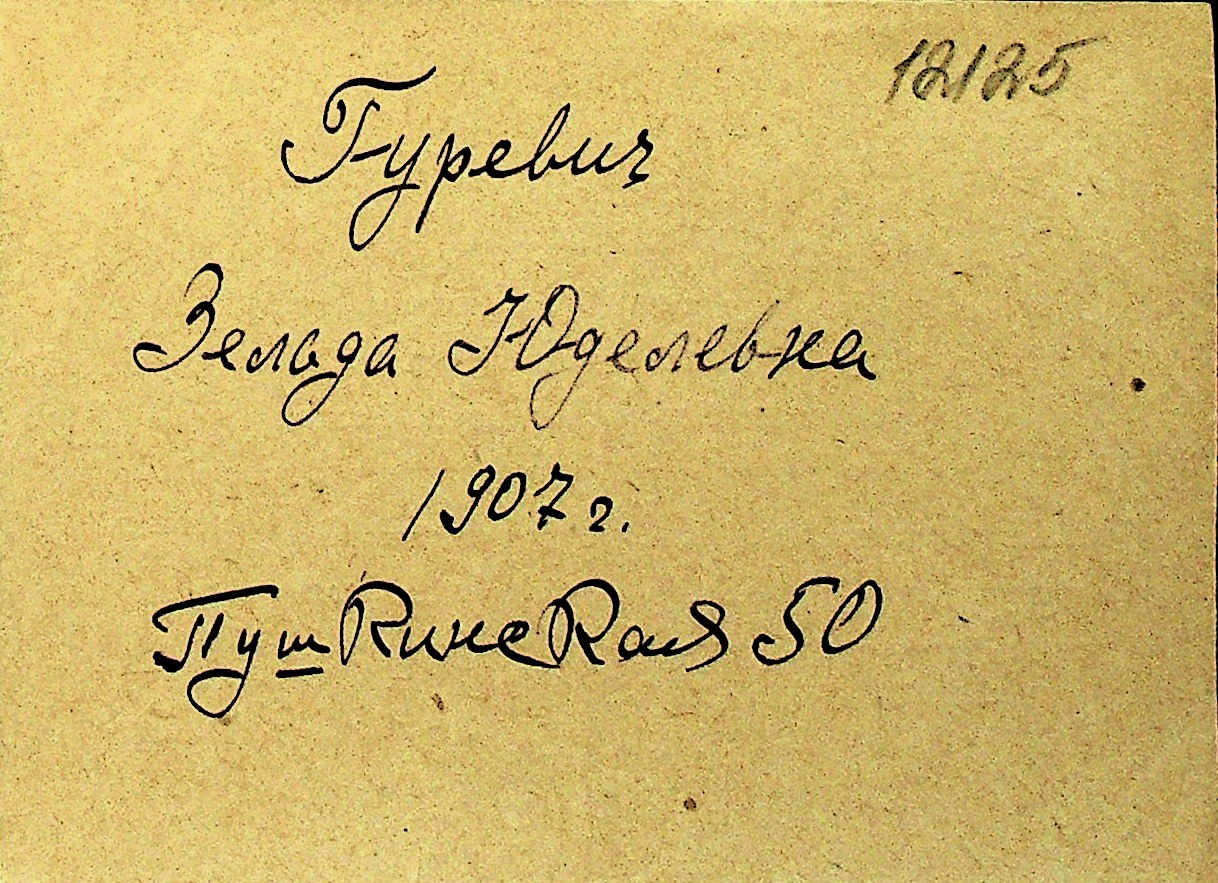 12125
Гуревич
Зельда Юделевна
1907 г.
Пушкинская 50